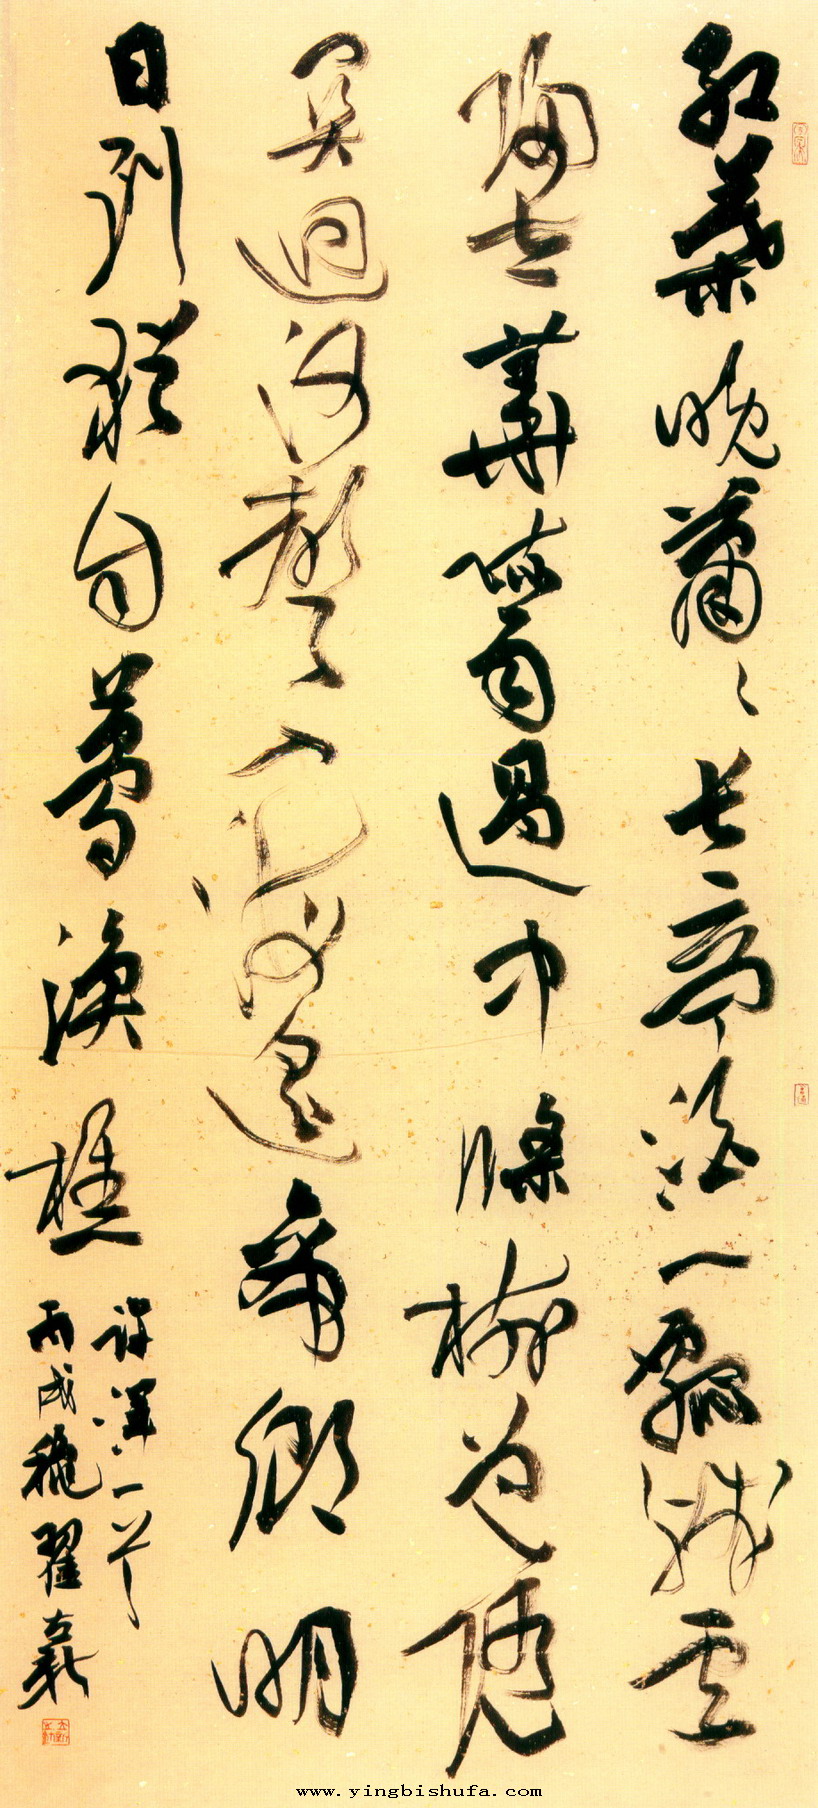 红葉晚蕭々长亭酒一瓢残雲
歸太華疏雨過中條樹色隨
關迥河聲入海遥帝鄉明
日到猶自夢漁樵
许渾一首
丙戌穐翟
www.yingbishufa.com